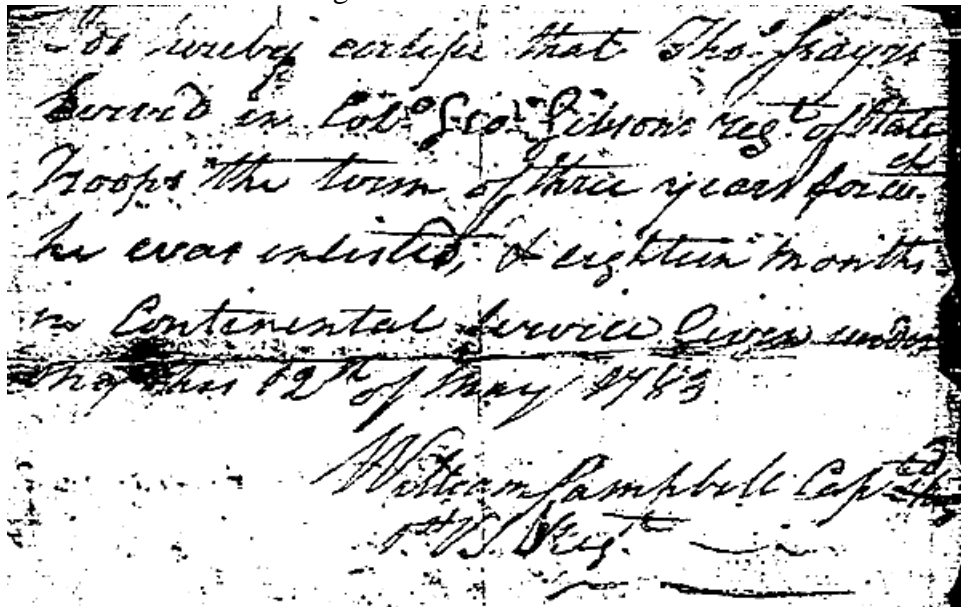 I do hereby certify that Tho.s
Served in Col.o Geo. Gibsons reg.t of State
Troops the term of three years for wch
he was inlisted, & eighteen months
in Continental Service Given under
my this 12th of May 1783
William Campbell Capt
1st V S Reg.t